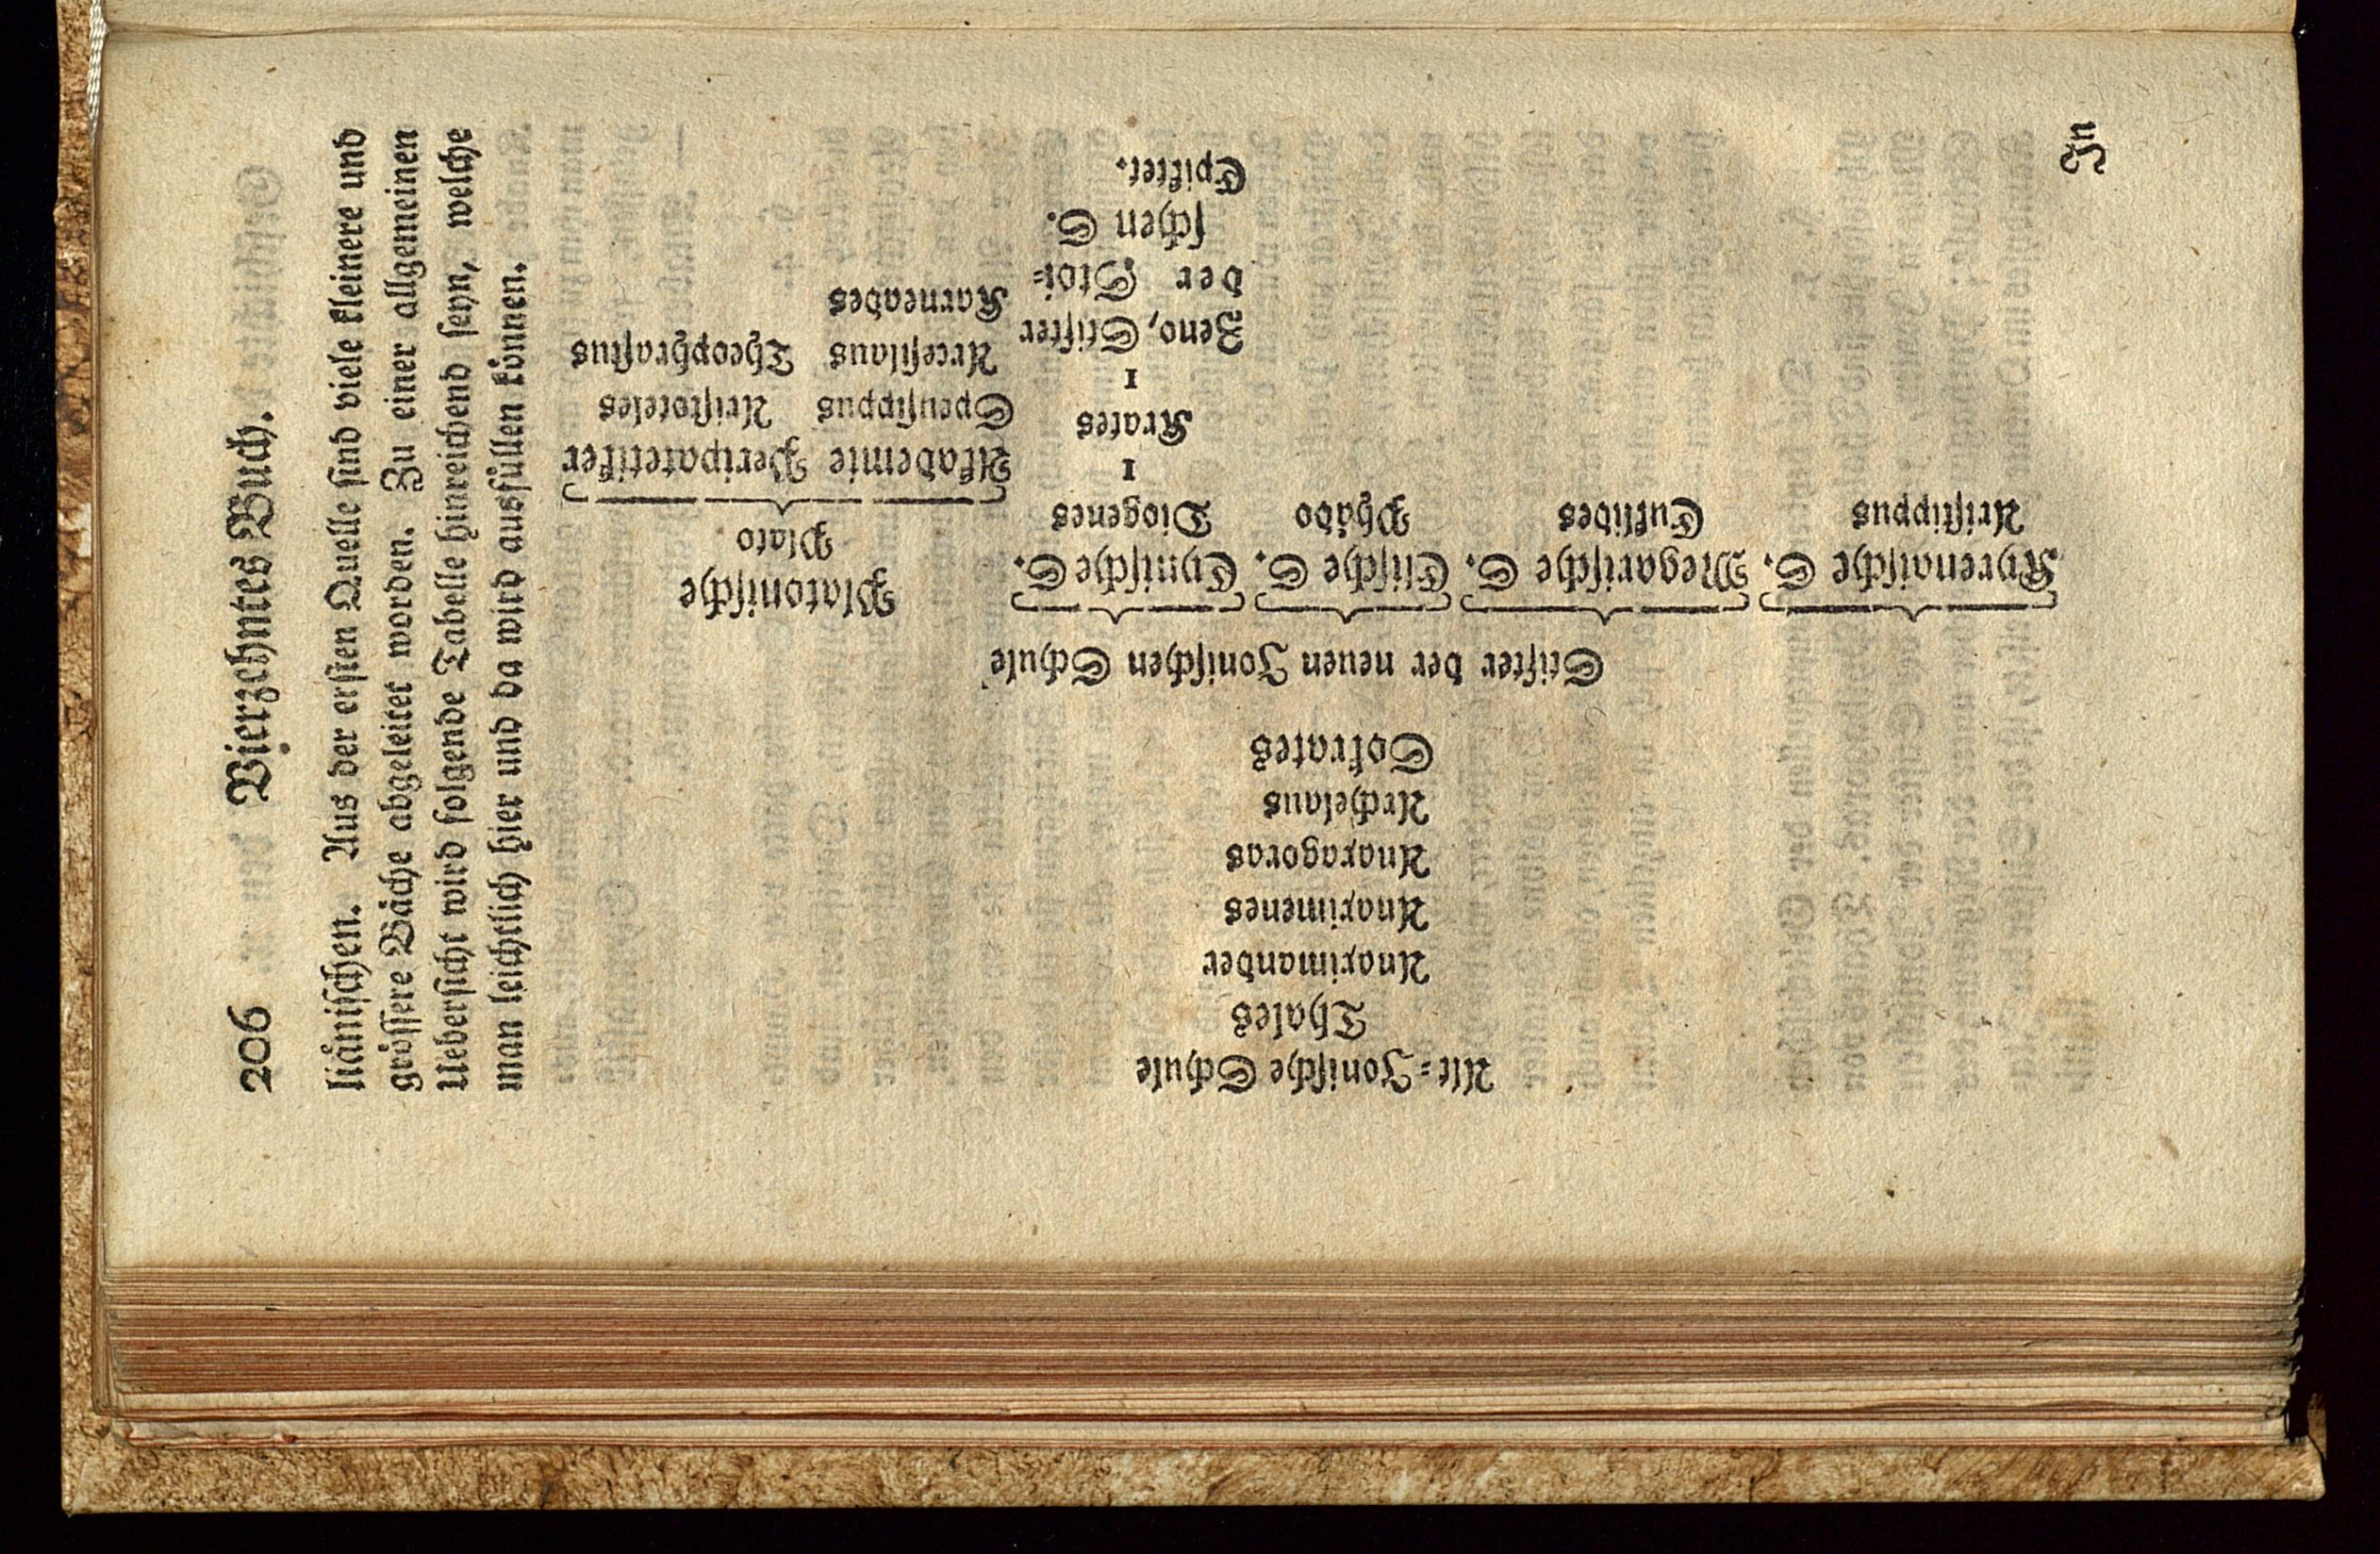 206 Vierzehntes Buch.
liånischen. Aus der ersten Quelle sind viele kleinere und
grössere Båche abgeleitet worden. Zu einer allgemeinen
Uebersicht wird folgende Tabelle hinreichend seyn, welche
man leichtlich hier und da wird ausfůllen kőnnen.
Alt-Jonische Schule
Thales
Anaximander
Anaximenes
Anaxagoras
Archelaus
Sokrates
Stifter der neuen Jonischen Schule
Kyrenaische S. Megarische S. Elische S. Cynische S. Platonische
Aristippus Euklides Phådo Diogenes Plato
I Akademie Peripatetiker
Krates Speusippus Aristoteles
I Arcesilaus Theophrastus
Zeno, Stifter Karneades
der Stoi-
schen S.
Epiktet.
In